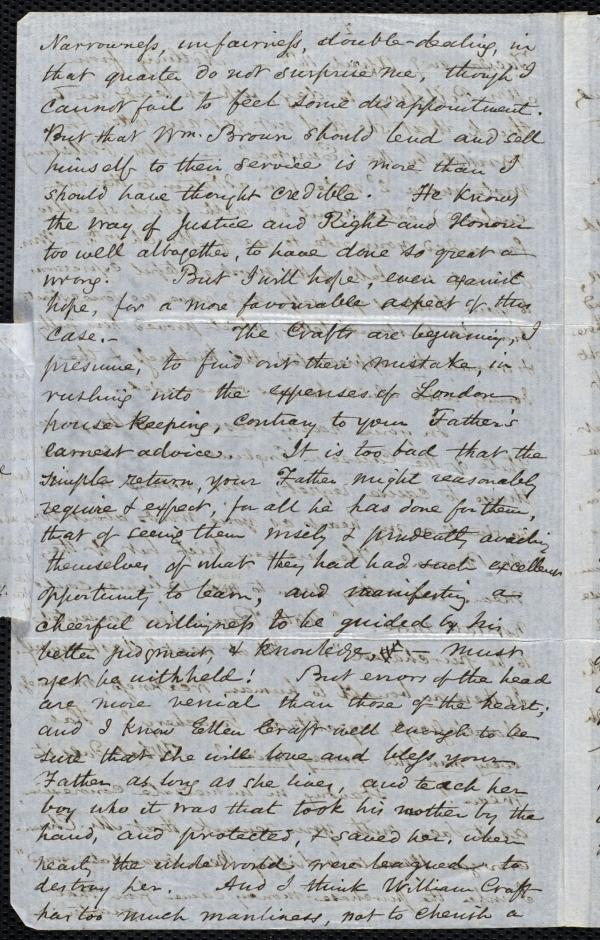 Narrowness, unfairness, double-dealing, in
that quarter do not surprise me, though I
cannot fail to feel some disappointment.
But that Wm. Brown should lend and sell
himself to their service is more than I
should have thought credible. He knows
the way of Justice and Right and Honour
too well altogether, to have done so great a
wrong. But I will hope, even against
hope, for a more favourable aspect of this
case.- The Crafts are beginning, I
presume, to find out their mistake, in
rushing into the expenses of London
house-keeping, contrary to your Father's
earnest advice. It is too bad that the
simple return, your Father might reasonably
require & expect, for all he has done for them,
that of seeing them wisely & prudently availing
themselves of what they had had such excellent
opportunity to learn, and manifesting a
cheerful willingness to be guided by his
better judgment, & knowledge, &c - must
yet be withheld! But errors of the head
are more venial than those of the heart;
and I know Ellen Craft well enough to be
sure that she will love and bless your
Father as long as she lives, and teach her
boy who it was that took his mother by the
hand, and protected, & saved her, when
nearly the whole world were leagued to
destroy her. And I think William Craft
has too much manliness, not to cherish a